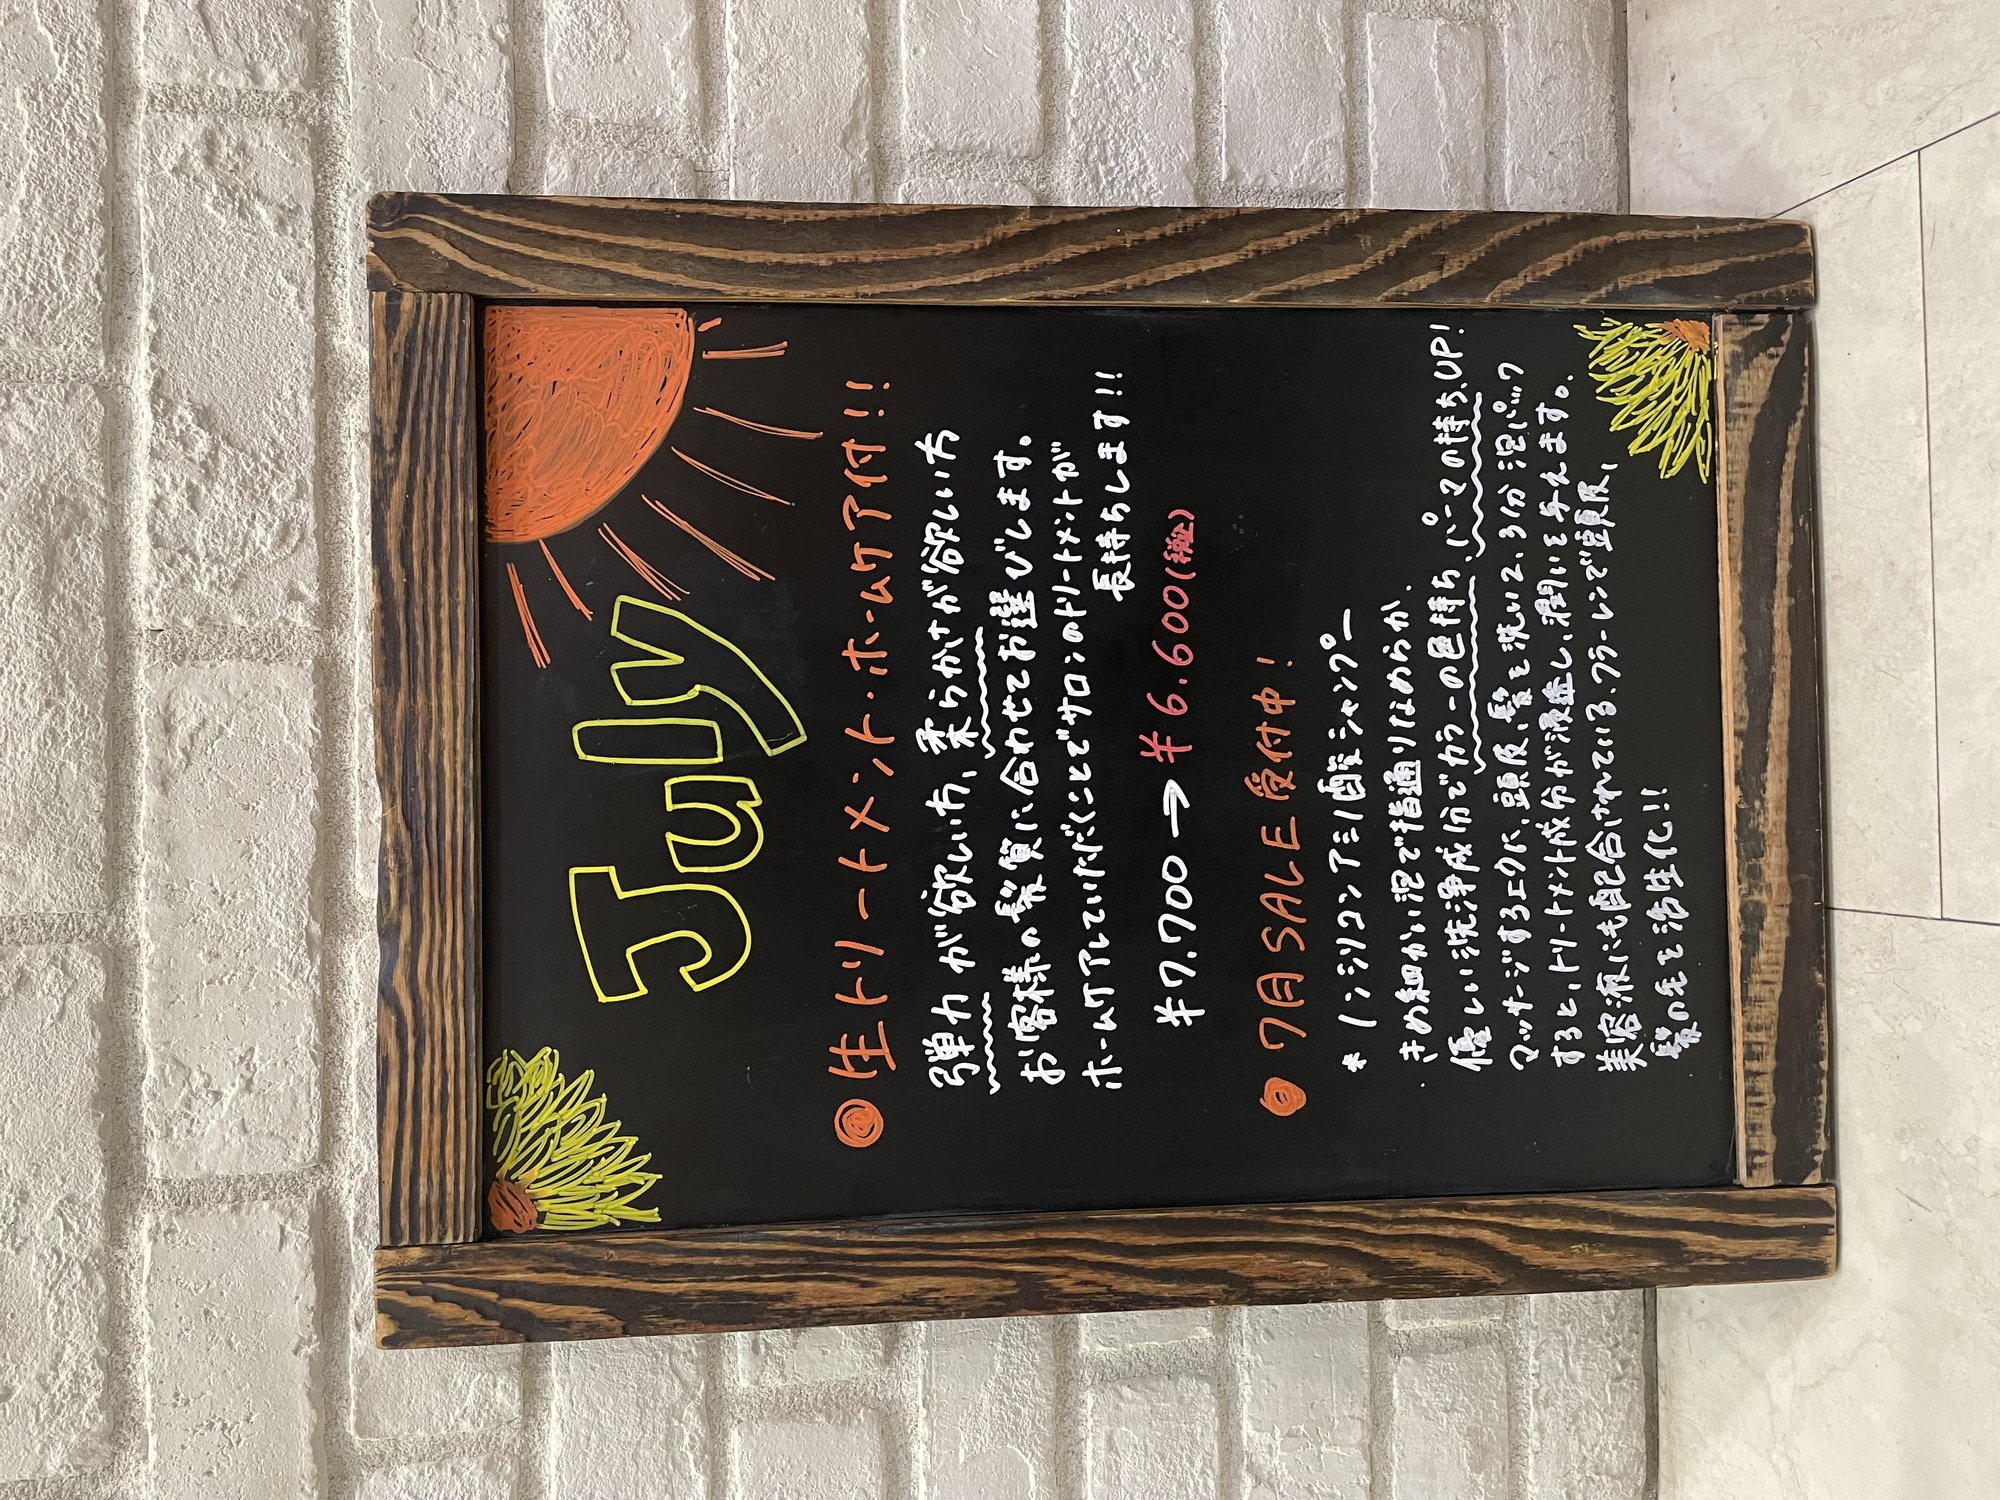 July
生トリートメント・ホームケア付!!
弾力が欲しい方、柔らかさが欲しい方
お客様の髪質に合わせてお選びします。
ホームケアしていただくことでサロンのトリートメントが
長持ちします!!
¥7.700→¥6.600(税込)
7月SALE受付中!
*ノンシリコンアミノ酸シャンプー
きめ細かい泡で指通りなめらか、
優しい洗浄成分でカラーの色持ち、パーマの持ちUP!
マッサージするように、頭皮、髪を洗い2.3分泡パック
すると、トリートメント成分が浸透し、潤いを与えます。
美容液にも配合されている、フラーレンで頭皮、
髪の毛を活性化!!